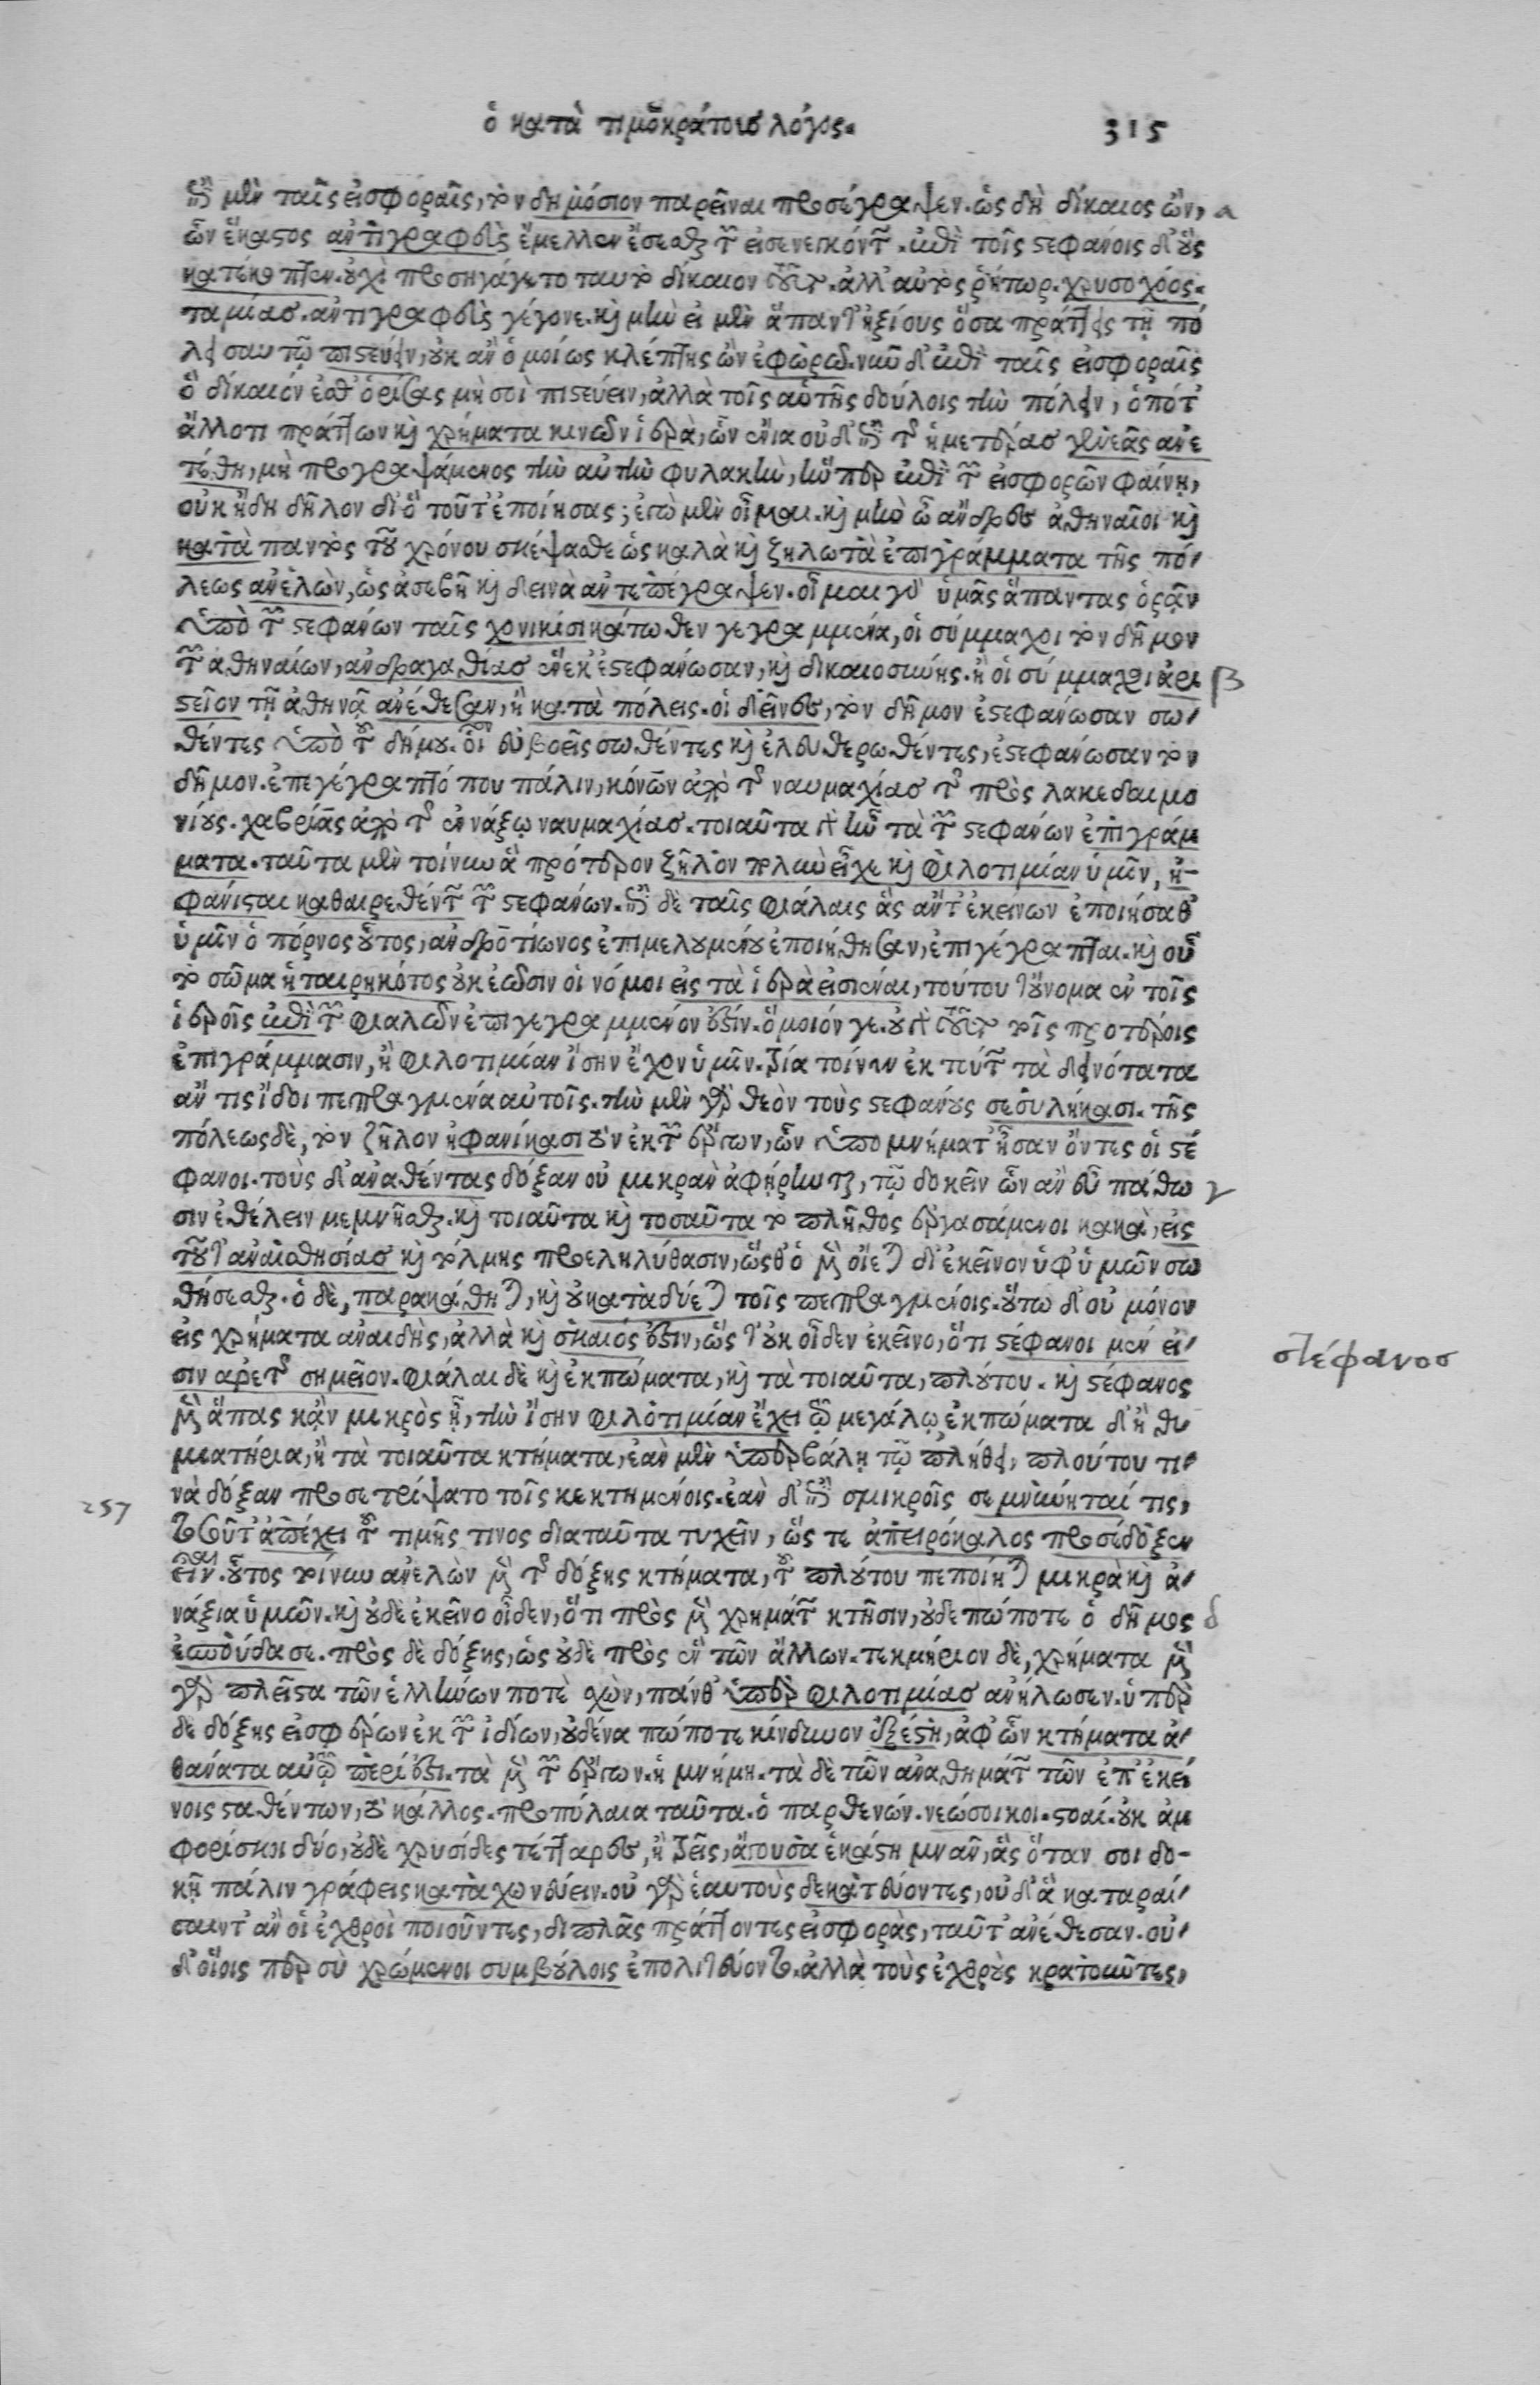 ὁ κατὰ τιμοκράτους λόγος. 315
ἐπὶ μὲν ταῖς εἰσφοραῖς, τὸν δημόσιον παρεῖναι προσέγραψεν. ὡς δὴ δίκαιος ὤν, α
ὧν ἕκαστος ἀντιγραφεὺς ἔμελλεν ἔσεσθαι τῶν εἰσενεγκόντων. ἐπὶ τοῖς στεφάνοις δ' οὓς
κατέκοπτεν. οὐχὶ προσηγάγετο ταυτὸ δίκαιον τοῦτο. ἀλλ' αὐτὸς ῥήτωρ. χρυσοχόος.
ταμίας. ἀντιγραφεὺς γέγονε. καὶ μὴν εἰ μὲν ἅπαντ' ἠξίους ὅσα πράττεις τῇ πό
λει σαυτῷ πιστεύειν, οὐκ ἂν ὁμοίως κλέπτης ὢν ἐφωρῶ. νῦν δ' ἐπὶ ταῖς εἰσφοραῖς
ὃ δίκαιόν ἐσθ' ὁρίσας μὴ σοὶ πιστεύειν, ἀλλὰ τοῖς αὑτῆς δούλοις τὴν πόλιν, ὁπότ'
ἄλλο τι πράττων καὶ χρήματα κινῶν ἱερὰ, ὧν ἔνια οὐδ' ἐπὶ τῆς ἡμετέρας γενεᾶς ἀνε
τέθη, μὴ προγραψάμενος τὴν αὐτὴν φυλακὴν, ἥνπερ ἐπὶ τῶν εἰσφορῶν φαίνῃ,
οὐκ ἤδη δῆλον δι' ὃ τοῦτ' ἐποίησας; ἐγὼ μὲν οἶμαι. καὶ μὴν ὦ ἄνδρες ἀθηναῖοι καὶ
κατὰ παντὸς τοῦ χρόνου σκέψασθε ὡς καλὰ καὶ ζηλωτὰ ἐπιγράμματα τῆς πό-
λεως ἀνελὼν, ὡς ἀσεβῆ καὶ δεινὰ ἀντεπέγραψεν. οἶμαι γὰρ ὑμᾶς ἅπαντας ὁρᾶν
ὑπὸ τῶν στεφάνων ταῖς χοινικίσι κάτωθεν γεγραμμένα, οἱ σύμμαχοι τὸν δῆμον
τῶν ἀθηναίων, ἀνδραγαθίας ἕνεκ' ἐστεφάνωσαν, καὶ δικαιοσύνης. ἢ οἱ σύμμαχοι ἀρι β
στεῖον τῇ ἀθηνᾷ ἀνέθεσαν, ἢ κατὰ πόλεις. οἱ δεῖνες, τὸν δῆμον ἐστεφάνωσαν σω-
θέντες ὑπὸ τοῦ δήμου. οἷον εὐβοεῖς σωθέντες καὶ ἐλευθερωθέντες, ἐστεφάνωσαν τὸν
δῆμον. ἐπεγέγραπτό που πάλιν, κόνων ἀπὸ τῆς ναυμαχίας τῆς πρὸς λακεδαιμο
νίους. χαβρίας ἀπὸ τῆς ἐν νάξῳ ναυμαχίας. τοιαῦτα γὰρ ἦν τὰ τῶν στεφάνων ἐπιγράμ
ματα. ταῦτα μὲν τοίνυν ἃ πρότερον ζῆλον πολὺν εἶχε καὶ φιλοτιμίαν ὑμῖν, ἠ-
φάνισται καθαιρεθέντων τῶν στεφάνων. ἐπὶ δὲ ταῖς φιάλαις ἃς ἀντ' ἐκείνων ἐποιήσαθ'
ὑμῖν ὁ πόρνος οὗτος, ἀνδροτίωνος ἐπιμελουμένου ἐποιήθησαν, ἐπιγέγραπται. καὶ οὗ
τὸ σῶμα ἡταιρηκότος οὐκ ἐῶσιν οἱ νόμοι εἰς τὰ ἱερὰ εἰσιέναι, τούτου τοὔνομα ἐν τοῖς
ἱεροῖς ἐπὶ τῶν φιαλῶν ἐπιγεγραμμένον ἐστίν. ὅμοιόν γε. οὐ γὰρ τοῦτο τοῖς προτέροις
ἐπιγράμμασιν, ἢ φιλοτιμίαν ἴσην ἔχον ὑμῖν. τρία τοίνυν ἐκ τούτων τὰ δεινότατα
ἄν τις ἴδοι πεπραγμένα αὐτοῖς. τὴν μὲν γὰρ θεὸν τοὺς στεφάνους σεσυλήκασι. τῆς
πόλεως δὲ, τὸν ζῆλον ἠφανίκασι τὸν ἐκ τῶν ἔργων, ὧν ὑπομνήματ' ἦσαν ὄντες οἱ στέ
φανοι. τοὺς δ' ἀναθέντας δόξαν οὐ μικρὰν ἀφῄρηνται, τῷ δοκεῖν ὧν ἂν εὖ πάθω γ
σιν ἐθέλειν μεμνῆσθαι. καὶ τοιαῦτα καὶ τοσαῦτα τὸ πλῆθος εἰργασάμενοι κακὰ, εἰς
τοῦτ' ἀναισθησίας καὶ τόλμης προεληλύθασιν, ὥσθ' ὁ μὲν οἴεται δι' ἐκεῖνον ὑφ' ὑμῶν σω
θήσεσθαι. ὁ δὲ, παρακάθηται, καὶ οὐ καταδύεται τοῖς πεπραγμένοις. οὕτω δ' οὐ μόνον
εἰς χρήματα ἀναιδὴς, ἀλλὰ καὶ σκαιός ἐστιν, ὥστ' οὐκ οἶδεν ἐκεῖνο, ὅτι στέφανοι μέν εἰ-
στέφανος
σιν ἀρετῆς σημεῖον. φιάλαι δὲ καὶ ἐκπώματα, καὶ τὰ τοιαῦτα, πλούτου. καὶ στέφανος
μὲν ἅπας κἂν μικρὸς ᾖ, τὴν ἴσην φιλοτιμίαν ἔχει τῷ μεγάλῳ ἐκπώματα δ' ἢ θυ
μιατήρια, ἢ τὰ τοιαῦτα κτήματα, ἐὰν μὲν ὑπερβάλῃ τῷ πλήθει, πλούτου τι-
νὰ δόξαν προσετρίψατο τοῖς κεκτημένοις. ἐὰν δ' ἐπὶ σμικροῖς σεμνύνηταί τις,
257
τοσοῦτ' ἀπέχει τοῦ τιμῆς τινος διὰ ταῦτα τυχεῖν, ὥς τε ἀπειρόκαλος προσέδοξεν
εἶναι. οὗτος τοίνυν ἀνελὼν μὲν τῆς δόξης κτήματα, τοῦ πλούτου πεποίηται μικρὰ καὶ ἀ-
νάξια ὑμῶν. καὶ οὐδὲ ἐκεῖνο οἶδεν, ὅτι πρὸς μὲν χρημάτων κτῆσιν, οὐδεπώποτε ὁ δῆμος δ
ἐσπούδασε. πρὸς δὲ δόξης, ὡς οὐδὲ πρὸς ἓν τῶν ἄλλων. τεκμήριον δὲ, χρήματα μὲν
γὰρ πλεῖστα τῶν ἑλλήνων ποτὲ σχὼν, πάνθ' ὑπὲρ φιλοτιμίας ἀνήλωσεν. ὑπὲρ
δὲ δόξης εἰσφέρων ἐκ τῶν ἰδίων, οὐδένα πώποτε κίνδυνον ἐξέστη, ἀφ' ὧν κτήματα ἀ-
θάνατα αὐτῷ περίεστι. τὰ μὲν τῶν ἔργων. ἡ μνήμη. τὰ δὲ τῶν ἀναθημάτων τῶν ἐπ' ἐκεί
νοις σταθέντων, τὸ κάλλος. προπύλαια ταῦτα. ὁ παρθενών. νεώσοικοι. στοαί. οὐκ ἀμ
φορίσκοι δύο, οὐδὲ χρυσίδες τέτταρες, ἢ τρεῖς, ἄγουσα ἑκάστη μνᾶν, ἃς ὅταν σοι δο-
κῇ πάλιν γράφεις καταχωνεύειν. οὐ γὰρ ἑαυτοὺς δεκατεύοντες, οὐδ' ἃ καταραί-
σαιντ' ἂν οἱ ἐχθροὶ ποιοῦντες, διπλᾶς πράττοντες εἰσφορὰς, ταῦτ' ἀνέθεσαν. οὐ-
δ' οἵοις περ σὺ χρώμενοι συμβούλοις ἐπολιτεύοντο. ἀλλὰ τοὺς ἐχθροὺς κρατοῦντες,